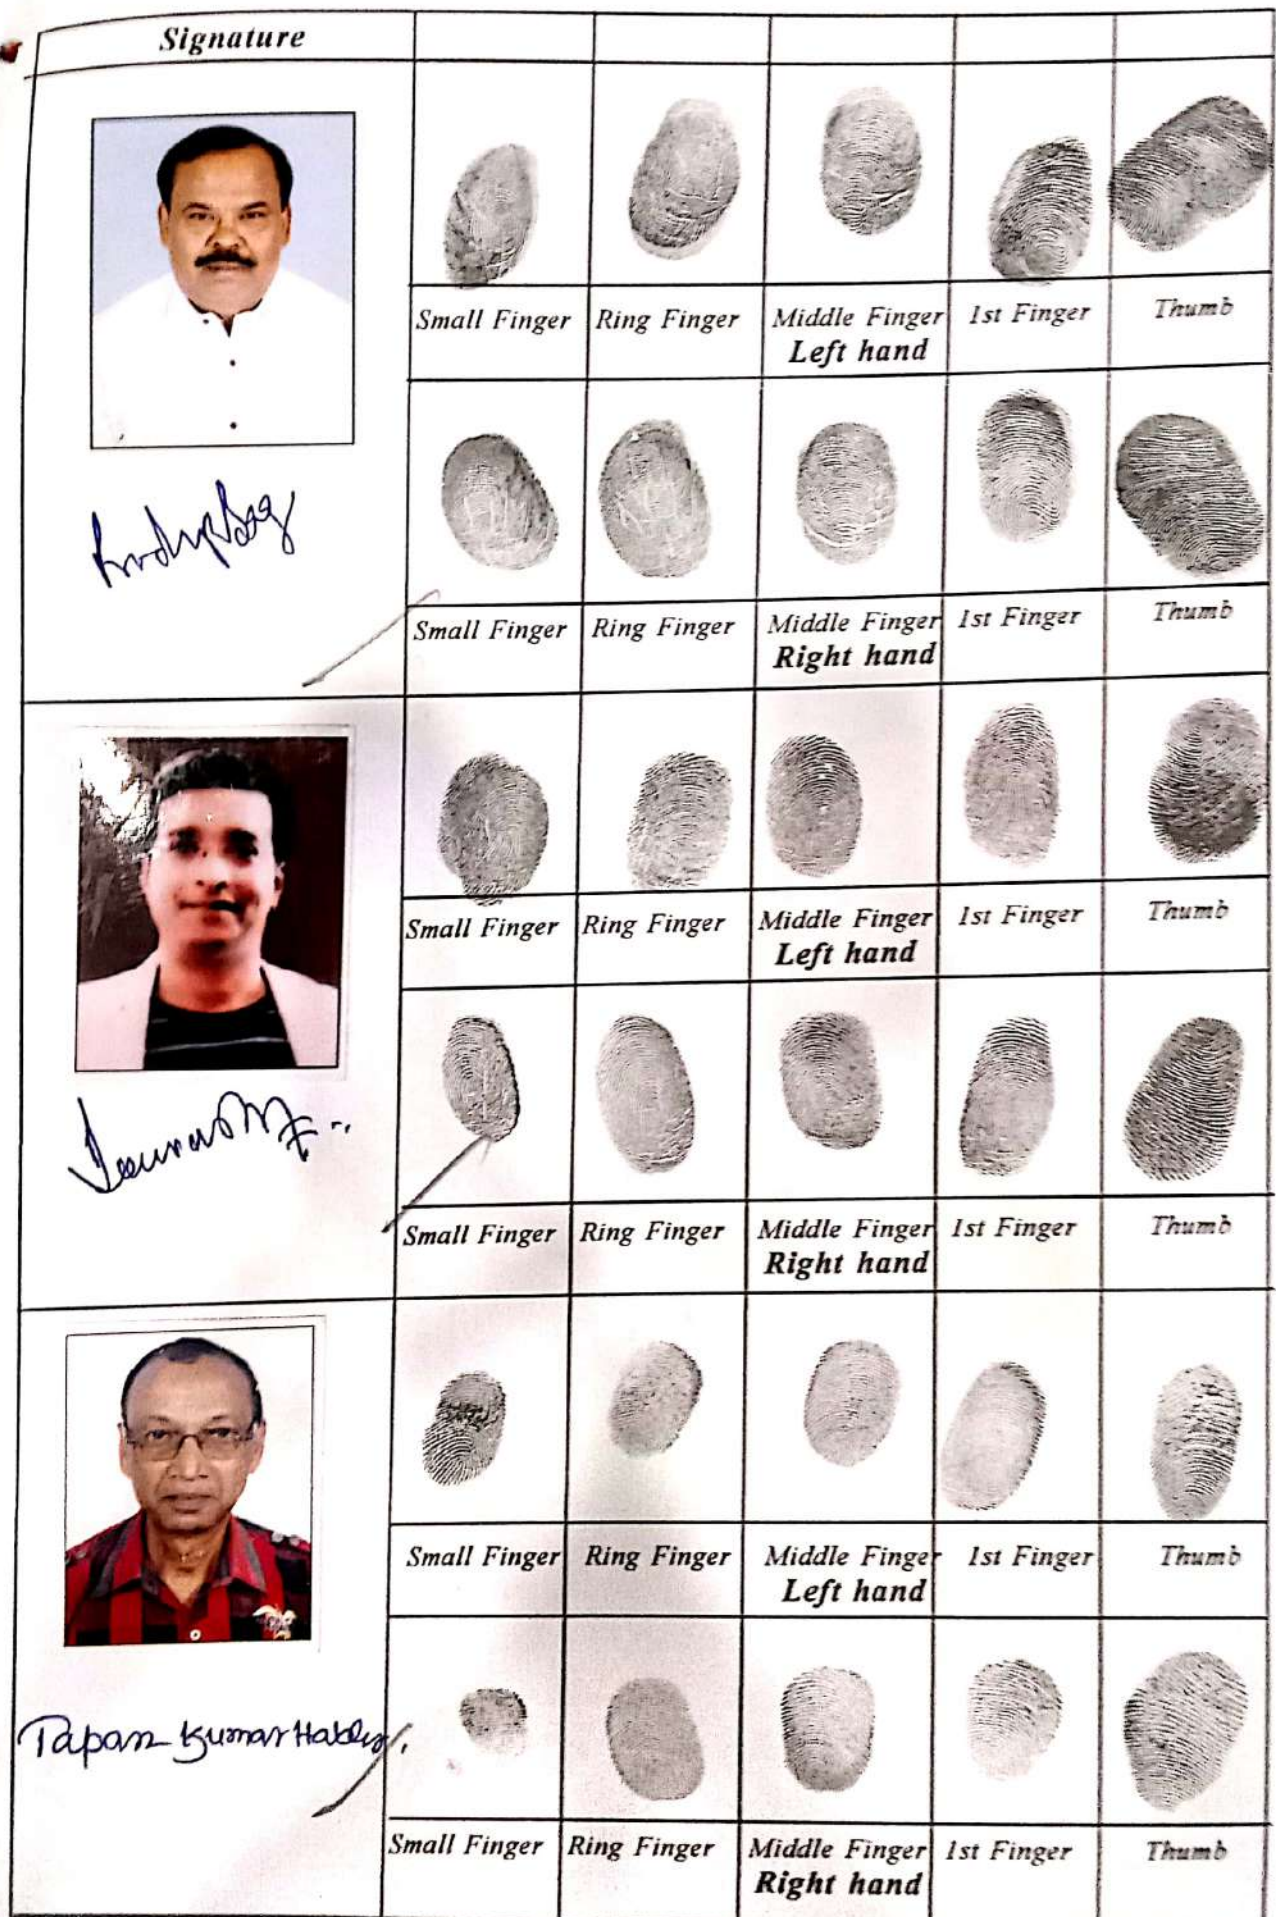 Signature
Small Finger Ring Finger Middle Finger 1st Finger Thumb
Left hand
Small Finger Ring Finger Middle Finger 1st Finger Thumb
Right hand
Small Finger Ring Finger Middle Finger 1st Finger Thumb
Left hand
Small Finger Ring Finger Middle Finger 1st Finger Thumb
Right hand
Small Finger Ring Finger Middle Finger 1st Finger Thumb
Left hand
Tapan Kumar
Small Finger Ring Finger Middle Finger 1st Finger Thumb
Right hand